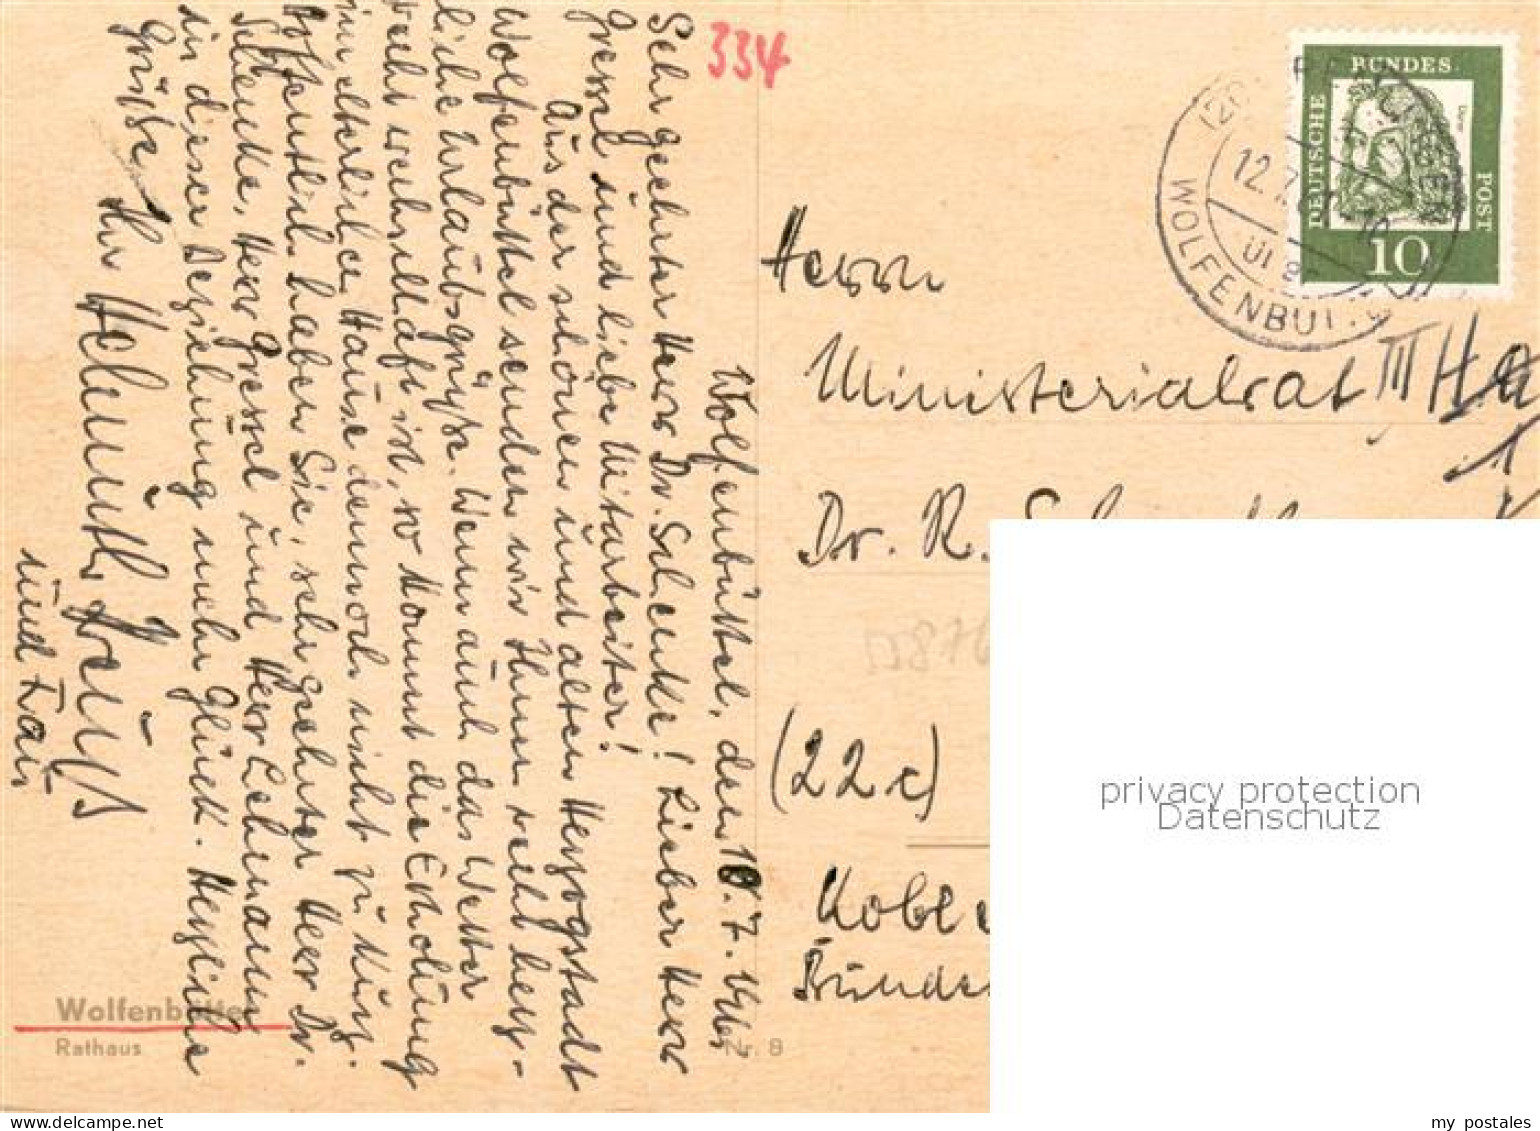 Wolfenbüttel, den 10.7.
Sehr geehrter Herr Dr. Schenke! Lieber Herr
Gressel und liebe Mitarbeiter!
Aus der schönen und alten Herzogstadt
Wolfenbüttel senden wir Ihnen recht herz-
liche Urlaubsgrüße. Wenn auch das Wetter
recht wechselhaft ist, so kommt die Erholung
im elterlichen Hause dennoch nicht zu kurz.
Hoffentlich haben Sie, sehr geehrter Herr Dr.
Schenke, Herr Gressel und Herr Lehmann
in dieser Beziehung mehr Glück. Herzliche
Grüße Ihr Helmuth
und Frau
334
DEUTSCHE
BUNDES
POST
Dürer
10
12.7.
WOLFENBÜT
Herrn
Ministerialrat III
Dr. R.
(22c)
Koble
Bundes
Wolfenbüttel
Rathaus
Nr. 8
privacy protection
Datenschutz
my postales